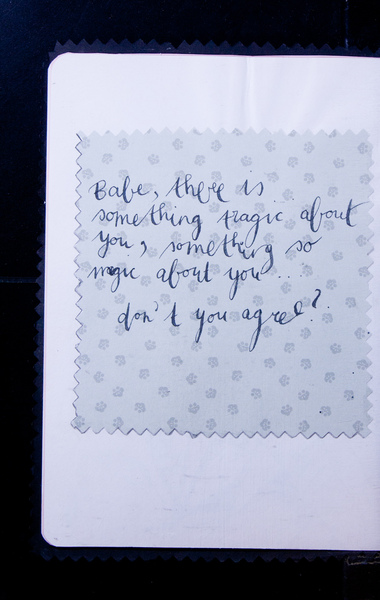 Babe, there is...
something tragic about
you, something so
magic about you...
don't you agree?